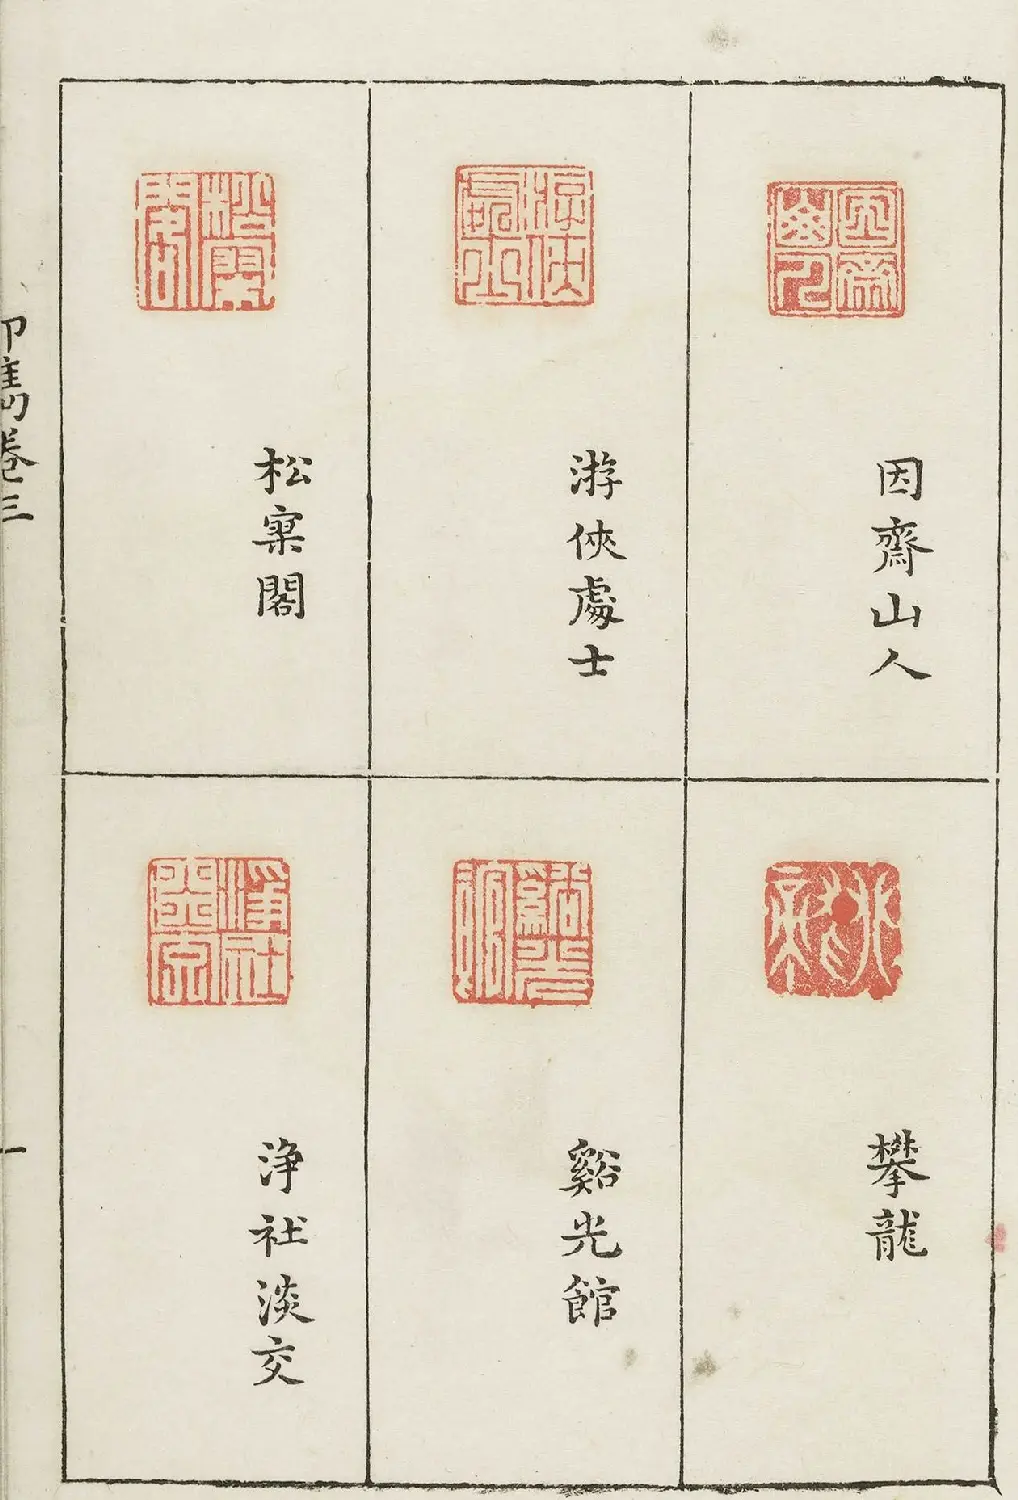 因齋山人
游俠處士
松寥閣
攀龍
谿光館
浄社淡交
印雋卷三
一